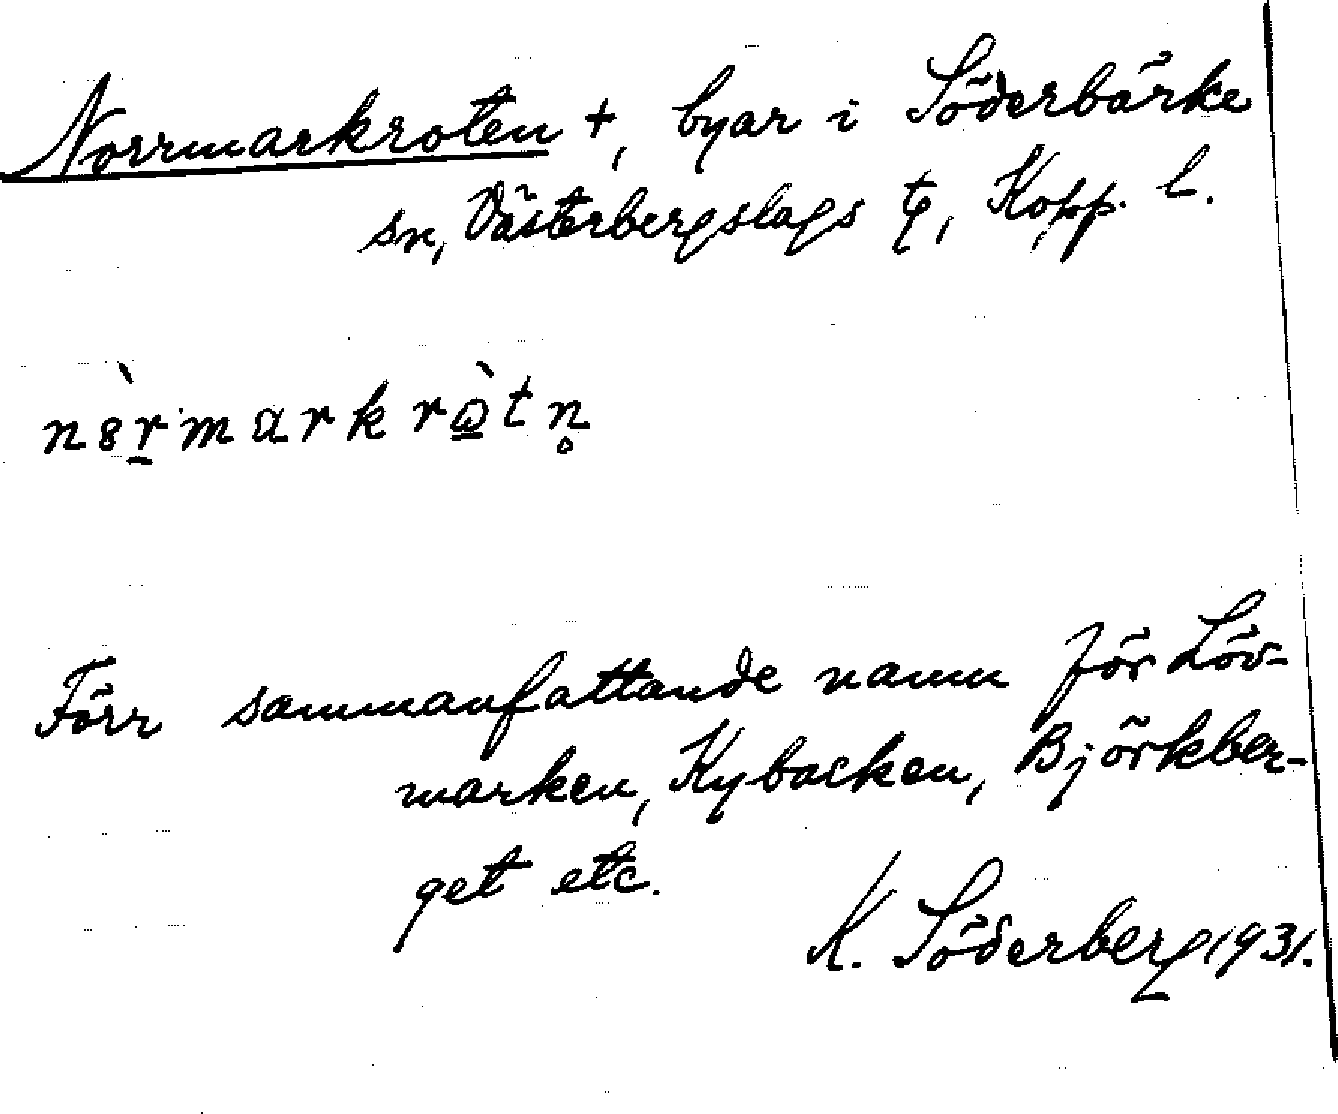 Norrmarkroten +, byar i Söderbärke
sn, Västerbergslags tg, Kopp. l.
nèr̠markrɷ̠̀tn̥
Förr sammanfattande namn för Löv-
marken, Kybacken, Björkber-
get etc.
K. Söderberg 1931.